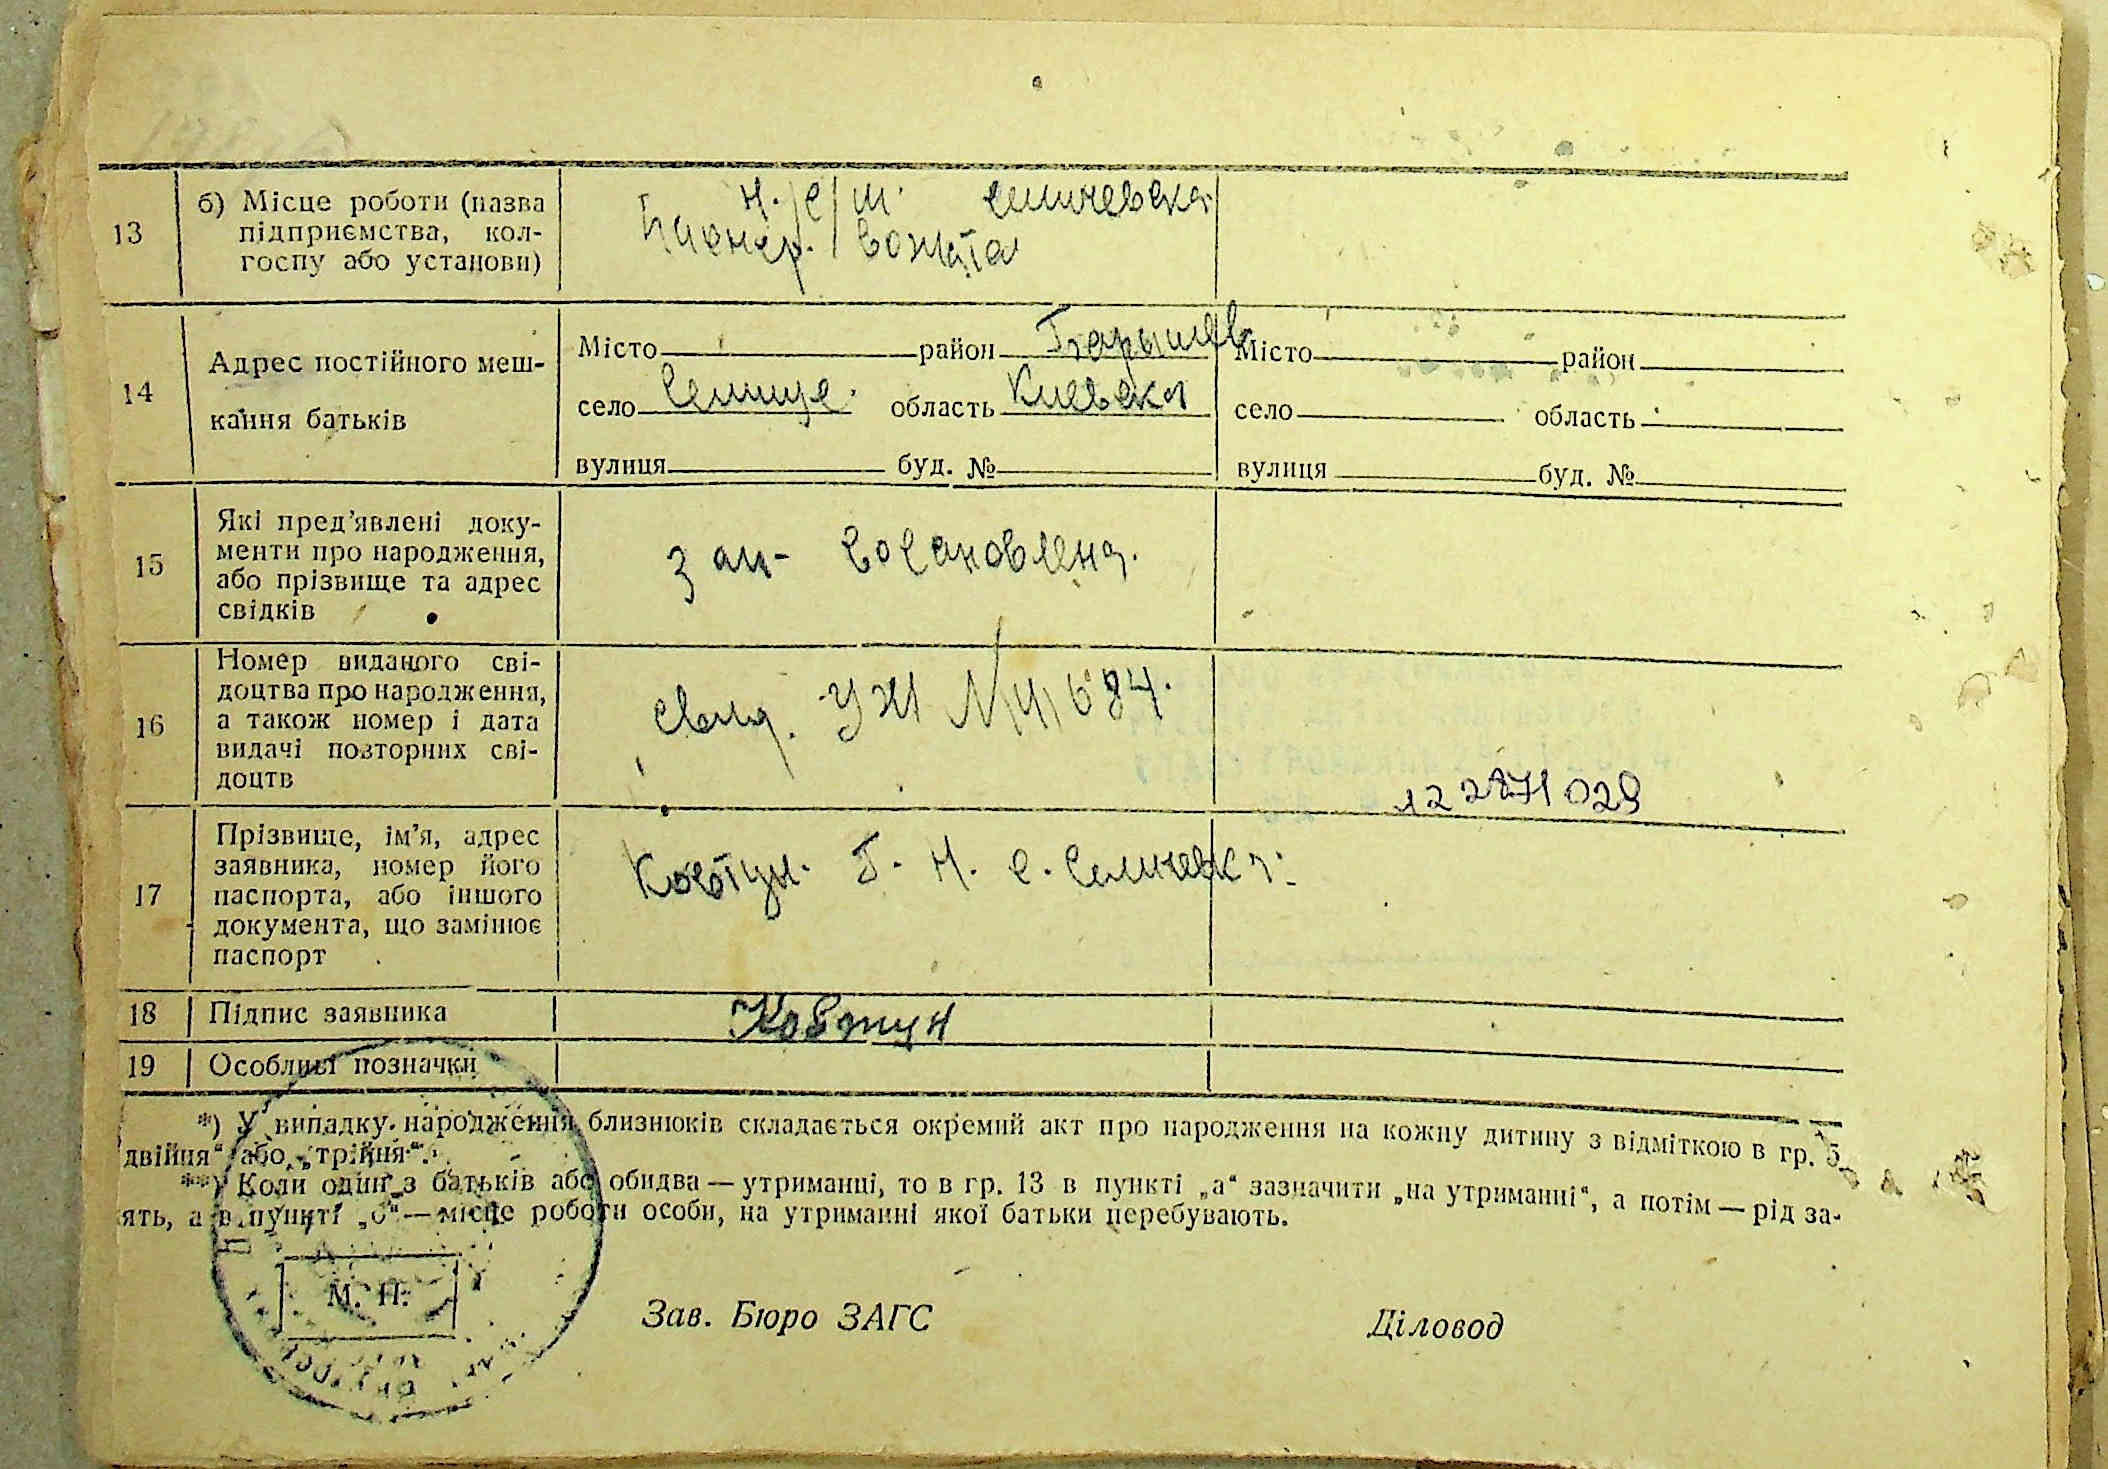 13 б) Місце роботи (назва підприємства, колгоспу або установи)
Н. с/ш.
Пионер. вожата
14 Адрес постійного мешкання батьків
Місто район Барышев
село Селище область Киевска
вулиця буд. №
Місто район
село область
вулиця буд. №
15 Які пред'явлені документи про народження, або прізвище та адрес свідків
зап- восановлена.
16 Номер виданого свідоцтва про народження, а також номер і дата видачі повторних свідоцтв
свид. УЖ №
122871029
17 Прізвище, ім'я, адрес заявника, номер його паспорта, або іншого документа, що замінює паспорт
Ковтун. Г. Н. с.
18 Підпис заявника
Ковтун
19 Особливі позначки
*) У випадку народження близнюків складається окремий акт про народження на кожну дитину з відміткою в гр. 5
двійня“ або „трійня“.
**) Коли один з батьків або обидва — утриманці, то в гр. 13 в пункті „а“ зазначити „на утриманні“, а потім — рід за-
ять, а в пункті „б“ — місце роботи особи, на утриманні якої батьки перебувають.
М. П.
Зав. Бюро ЗАГС
Діловод